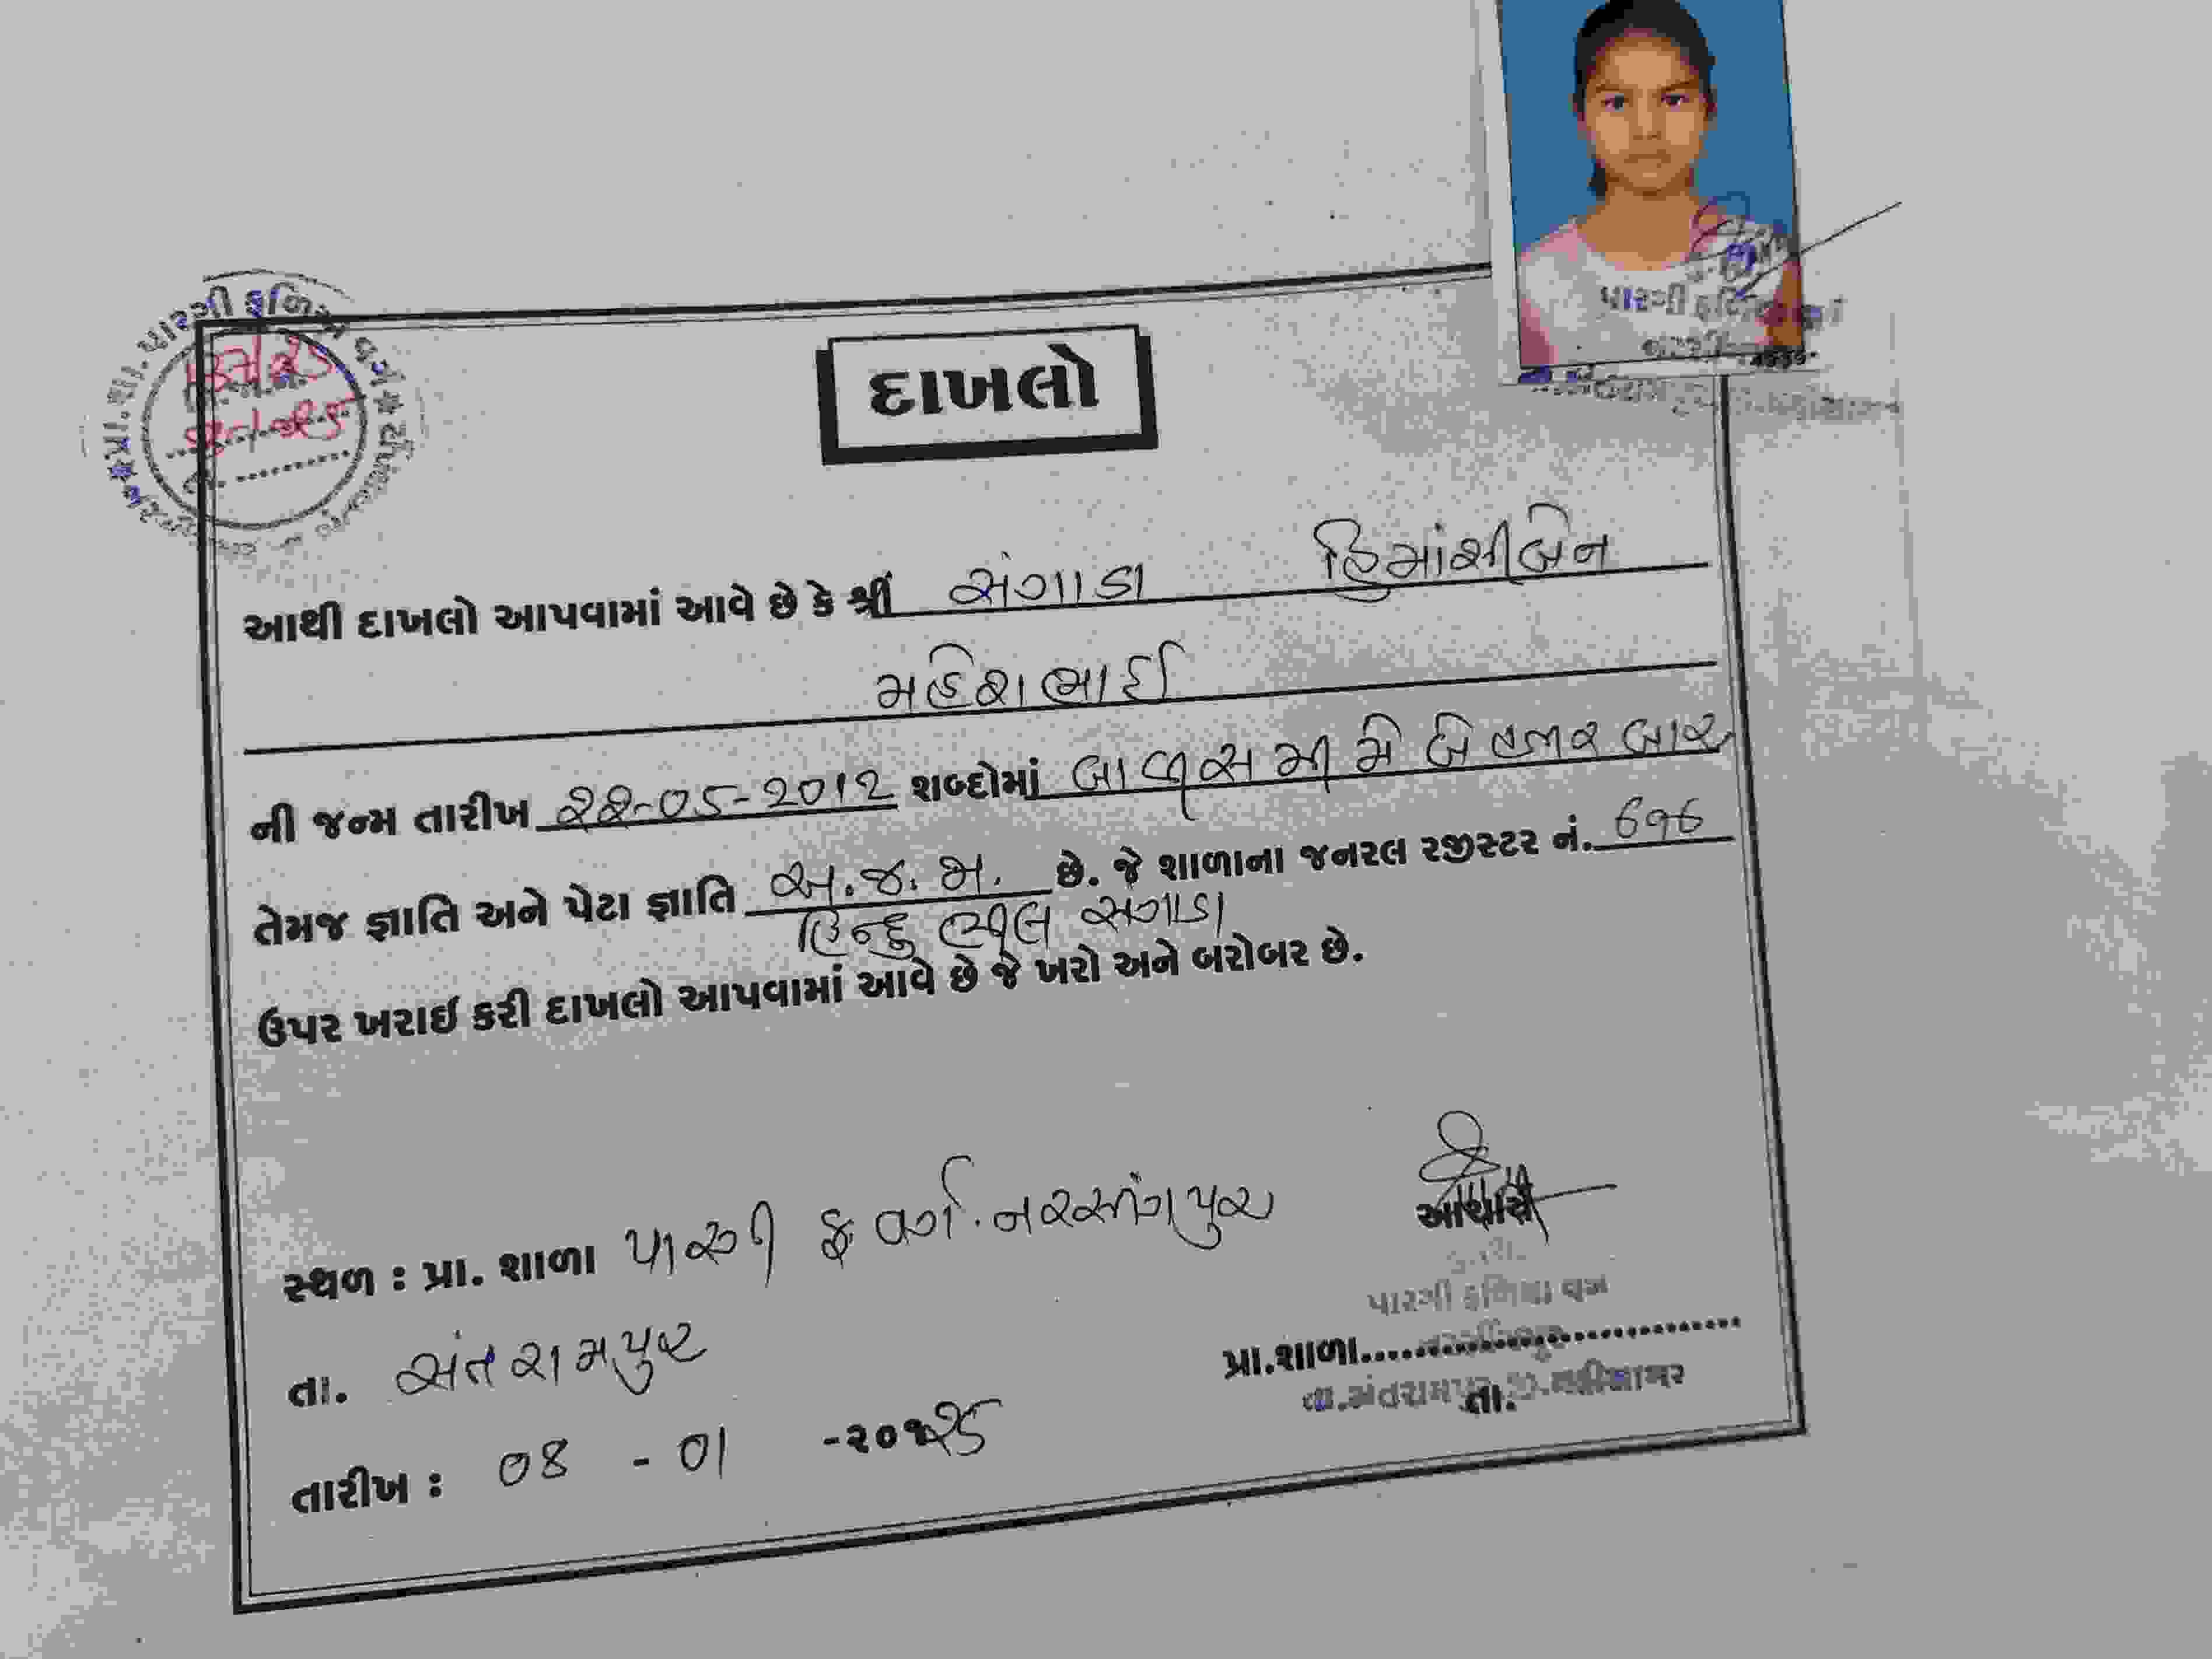 દાખલો
આથી દાખલો આપવામાં આવે છે કે શ્રી સંગાડા હિમાંશીબેન
મહેશભાઈ
ની જન્મ તારીખ ૨૨-૦5-2012 શબ્દોમાં બાવીસમી મે બે હજાર બાર
તેમજ જ્ઞાતિ અને પેટા જ્ઞાતિ અ.જ.જા. છે. જે શાળાના જનરલ રજીસ્ટર નં. ૬૧૬
હિન્દુ ભીલ સંગાડા
ઉપર ખરાઇ કરી દાખલો આપવામાં આવે છે જે ખરો અને બરોબર છે.
સ્થળ : પ્રા. શાળા પારગી ફ. વર્ગ. નરસીંગપુર
આચાર્ય
પારગી ફળિયા વર્ગ
તા. સંતરામપુર
પ્રા.શાળા
તા.સંતરામપુર જી.મહીસાગર
તા.
તારીખ : ૦૪ - ૦૧ -૨૦૨૬